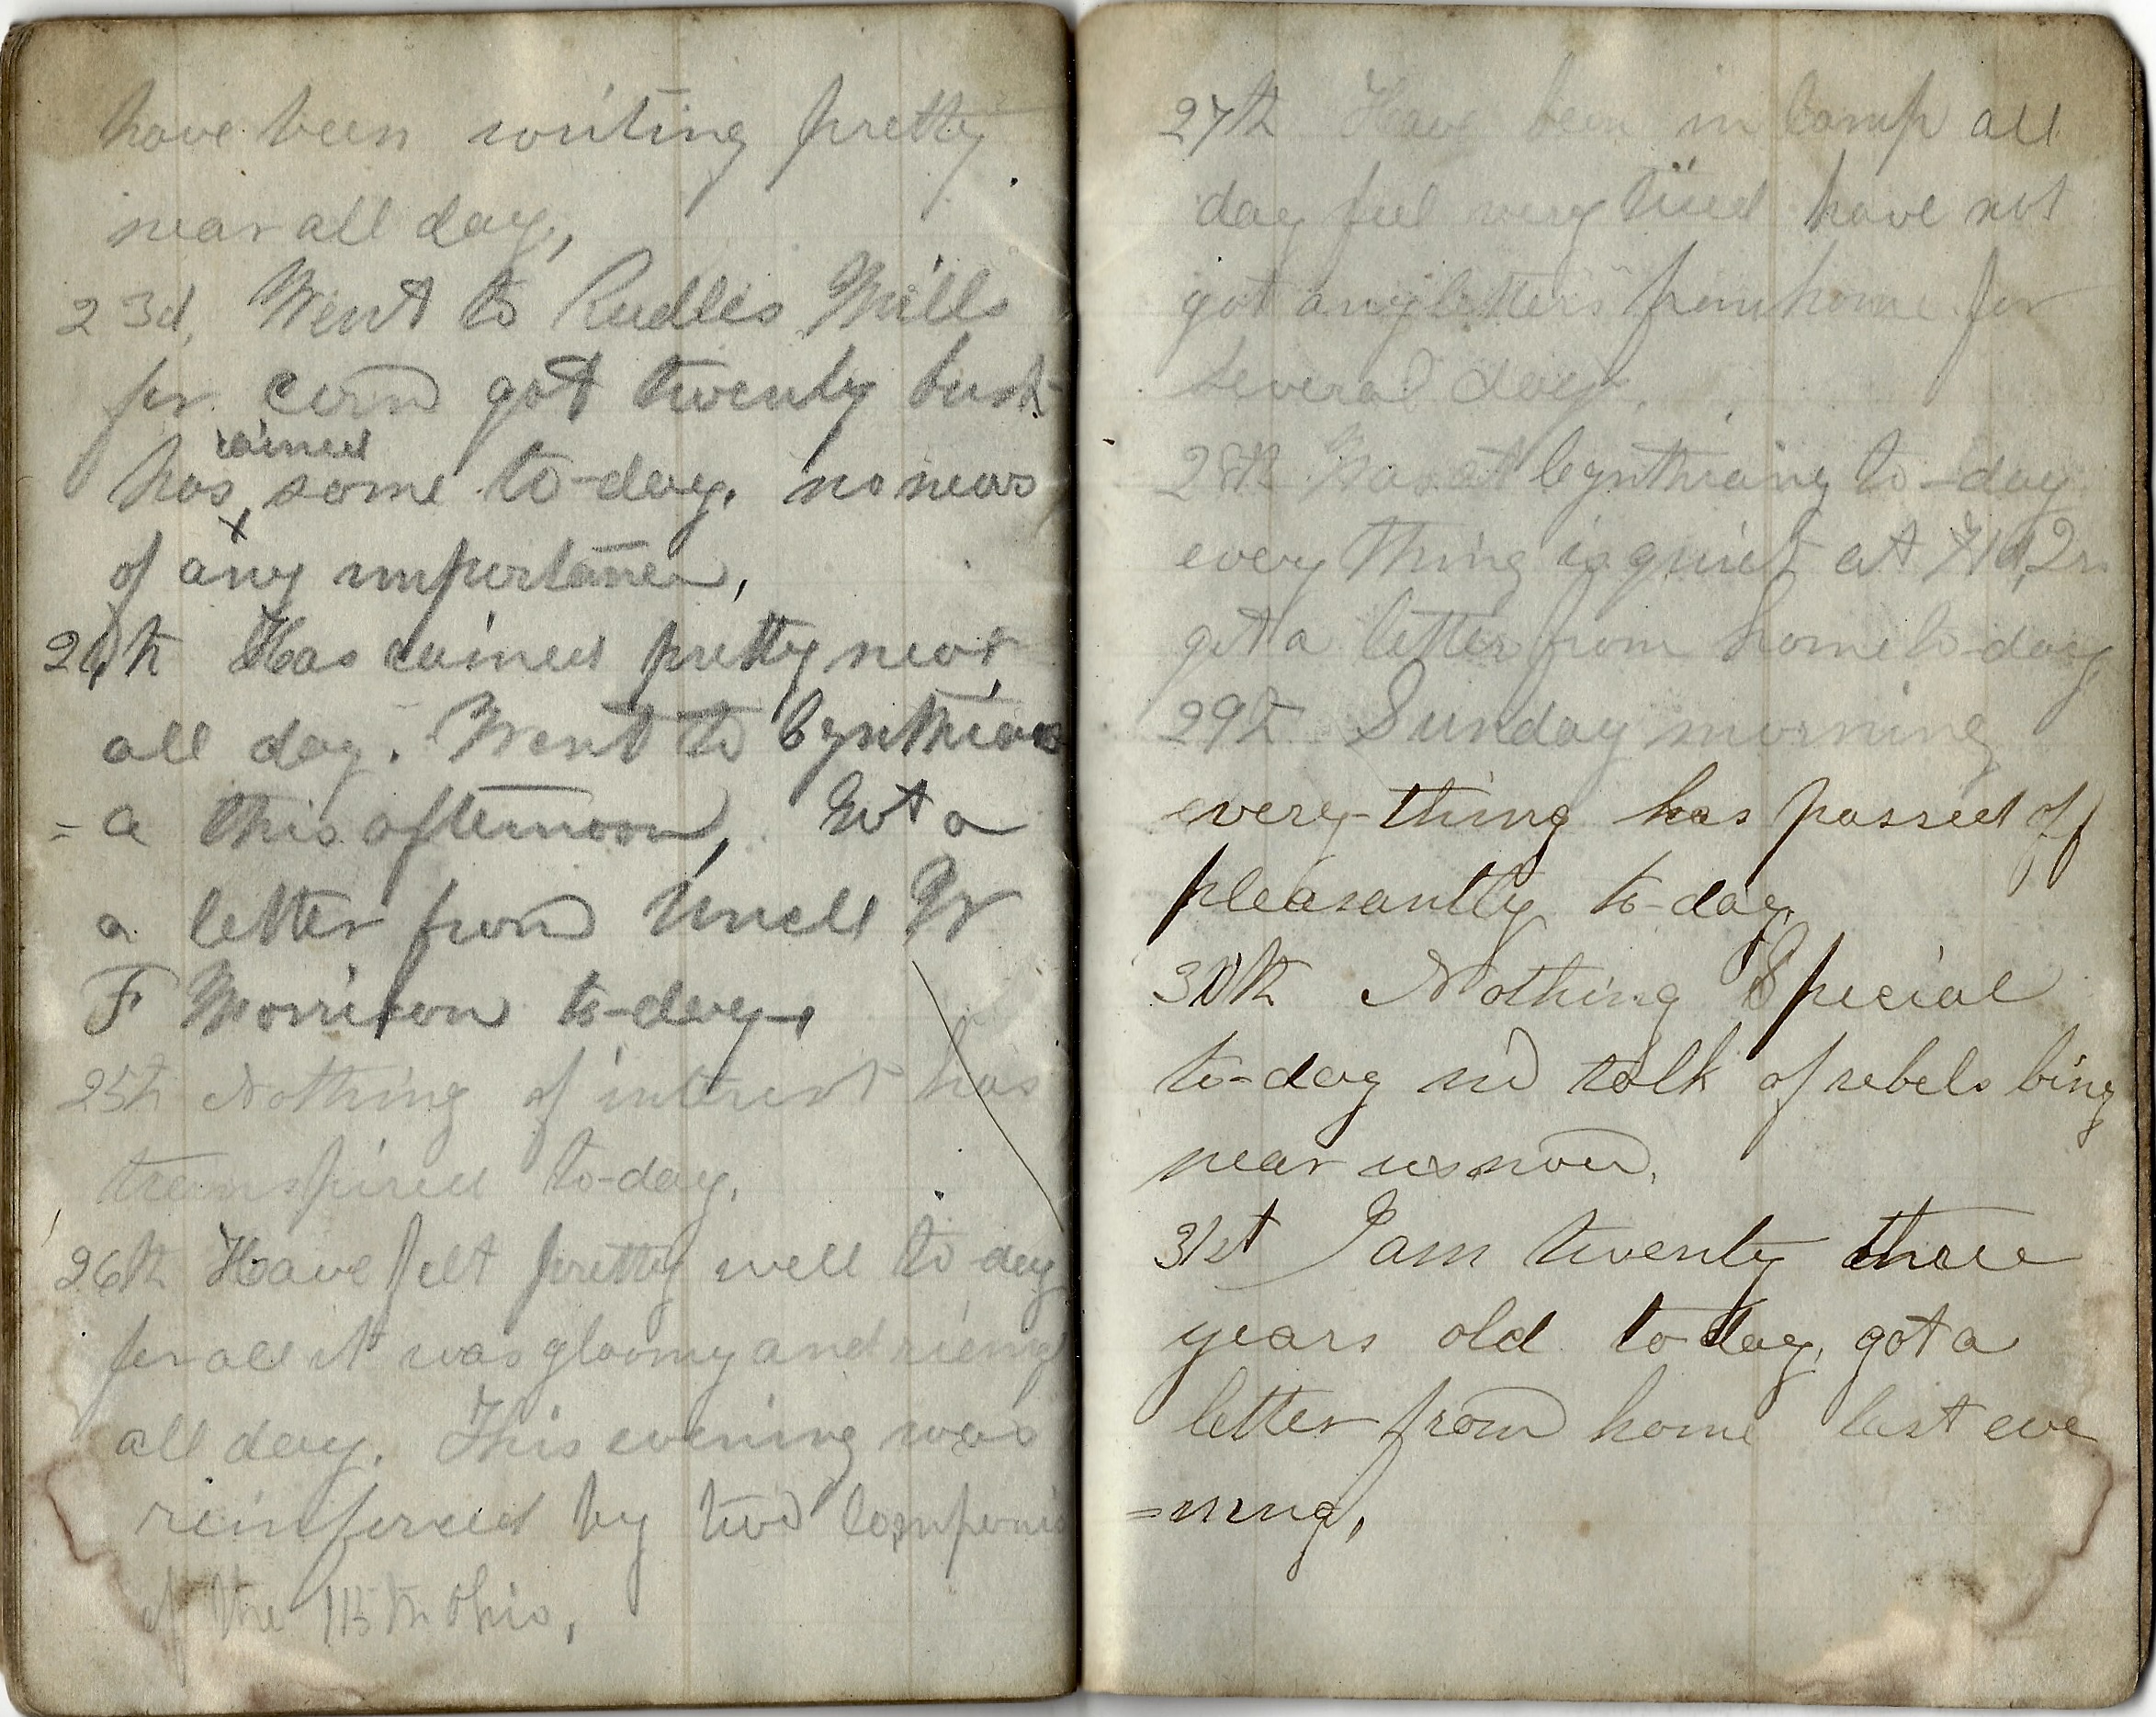 have been writing pretty
near all day,
23d, Went to Rudles Mills
for corn got twenty bush
rained
has some to-day. no news
of any importance,
24th Has rained pretty near
all day. Went to Cynthian
= a this afternoon, Got a
a letter from Uncle W
F Morrison to-day,
25th Nothing of interest has
transpired to-day.
26th Have felt pretty well to day
for all it was gloomy and
all day. This evening was
reinforced by two Companies
of the 118th Ohio,
27th Have been in Camp all
day feel very tired have not
got any letters from home for
several days.
28th Was at Cynthiana to-day
every thing is quiet at
got a letter from home to-day
29th Sunday morning
every-thing has passed off
pleasantly to-day.
30th Nothing Special
to-day no talk of rebels bing
near us now.
31st I am twenty three
years old to day, got a
letter from home last eve
=ning,